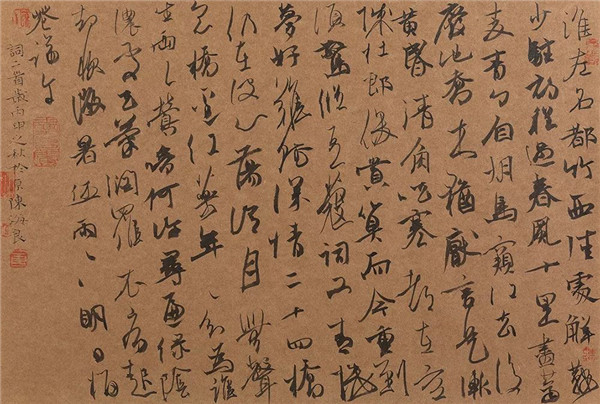 淮左名都竹西佳處解鞍
少駐初程過春風十里盡薺
麦青々自胡馬窺江去後
廢池喬木猶厭言兵漸
黄昏清角吹寒都在空
城杜郎俊賞算而今重到
須驚縱豆蔻詞工青樓
夢好難賦深情二十四橋
仍在波心蕩冷月無聲
念橋邊紅藥年々知為誰
生雨々何尋綠陰
濃潤不起
却雨々明日
詞二首歲丙申之秋於京陳海良